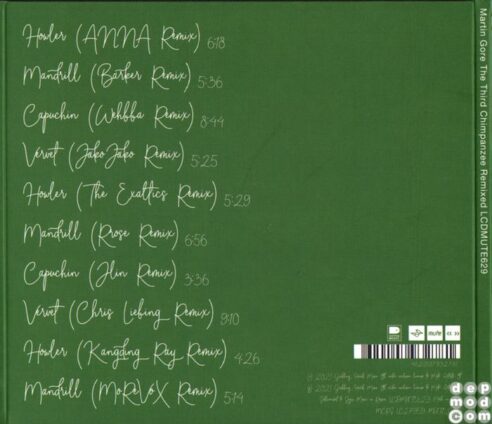 Howler (ANNA Remix) 6:18
Mandrill (Barker Remix) 5:36
Capuchin (Wehbba Remix) 8:44
Vervet (JakoJako Remix) 5:25
Howler (The Exaltics Remix) 5:29
Mandrill (Rrose Remix) 6:56
Capuchin (Jlin Remix) 3:36
Vervet (Chris Liebing Remix) 9:10
Howler (Kangding Ray Remix) 4:26
Mandrill (MoReVoX Remix) 5:14
Martin Gore The Third Chimpanzee Remixed LCDMUTE629
mute
depmod.com